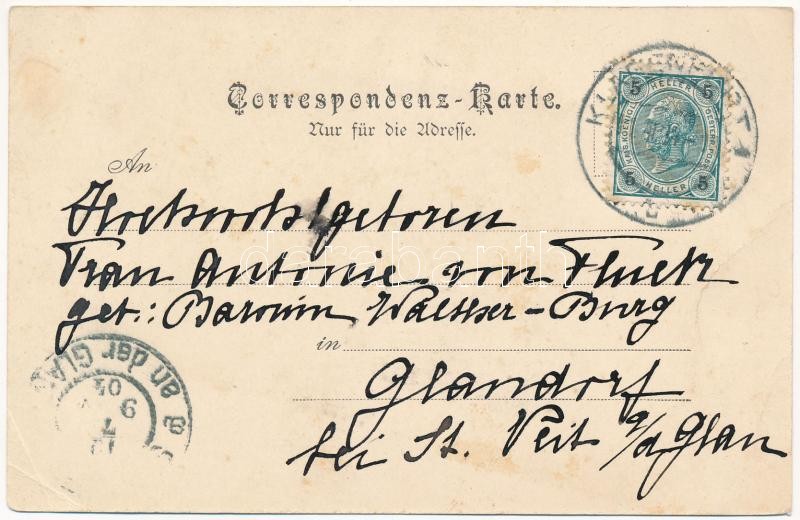 Correspondenz-Karte.
Nur für die Adresse.
KLAGENFURT 1
5 HELLER 5
KAIS. KOENIGL. OESTERR. POST
5 HELLER 5
An
Hochwohlgeboren
Frau Antonie von Fluck
geb.: Baronin Walther-Burg
in
Glandorf
bei St. Veit a/d Glan
an der GLAN
9
04
darabanth